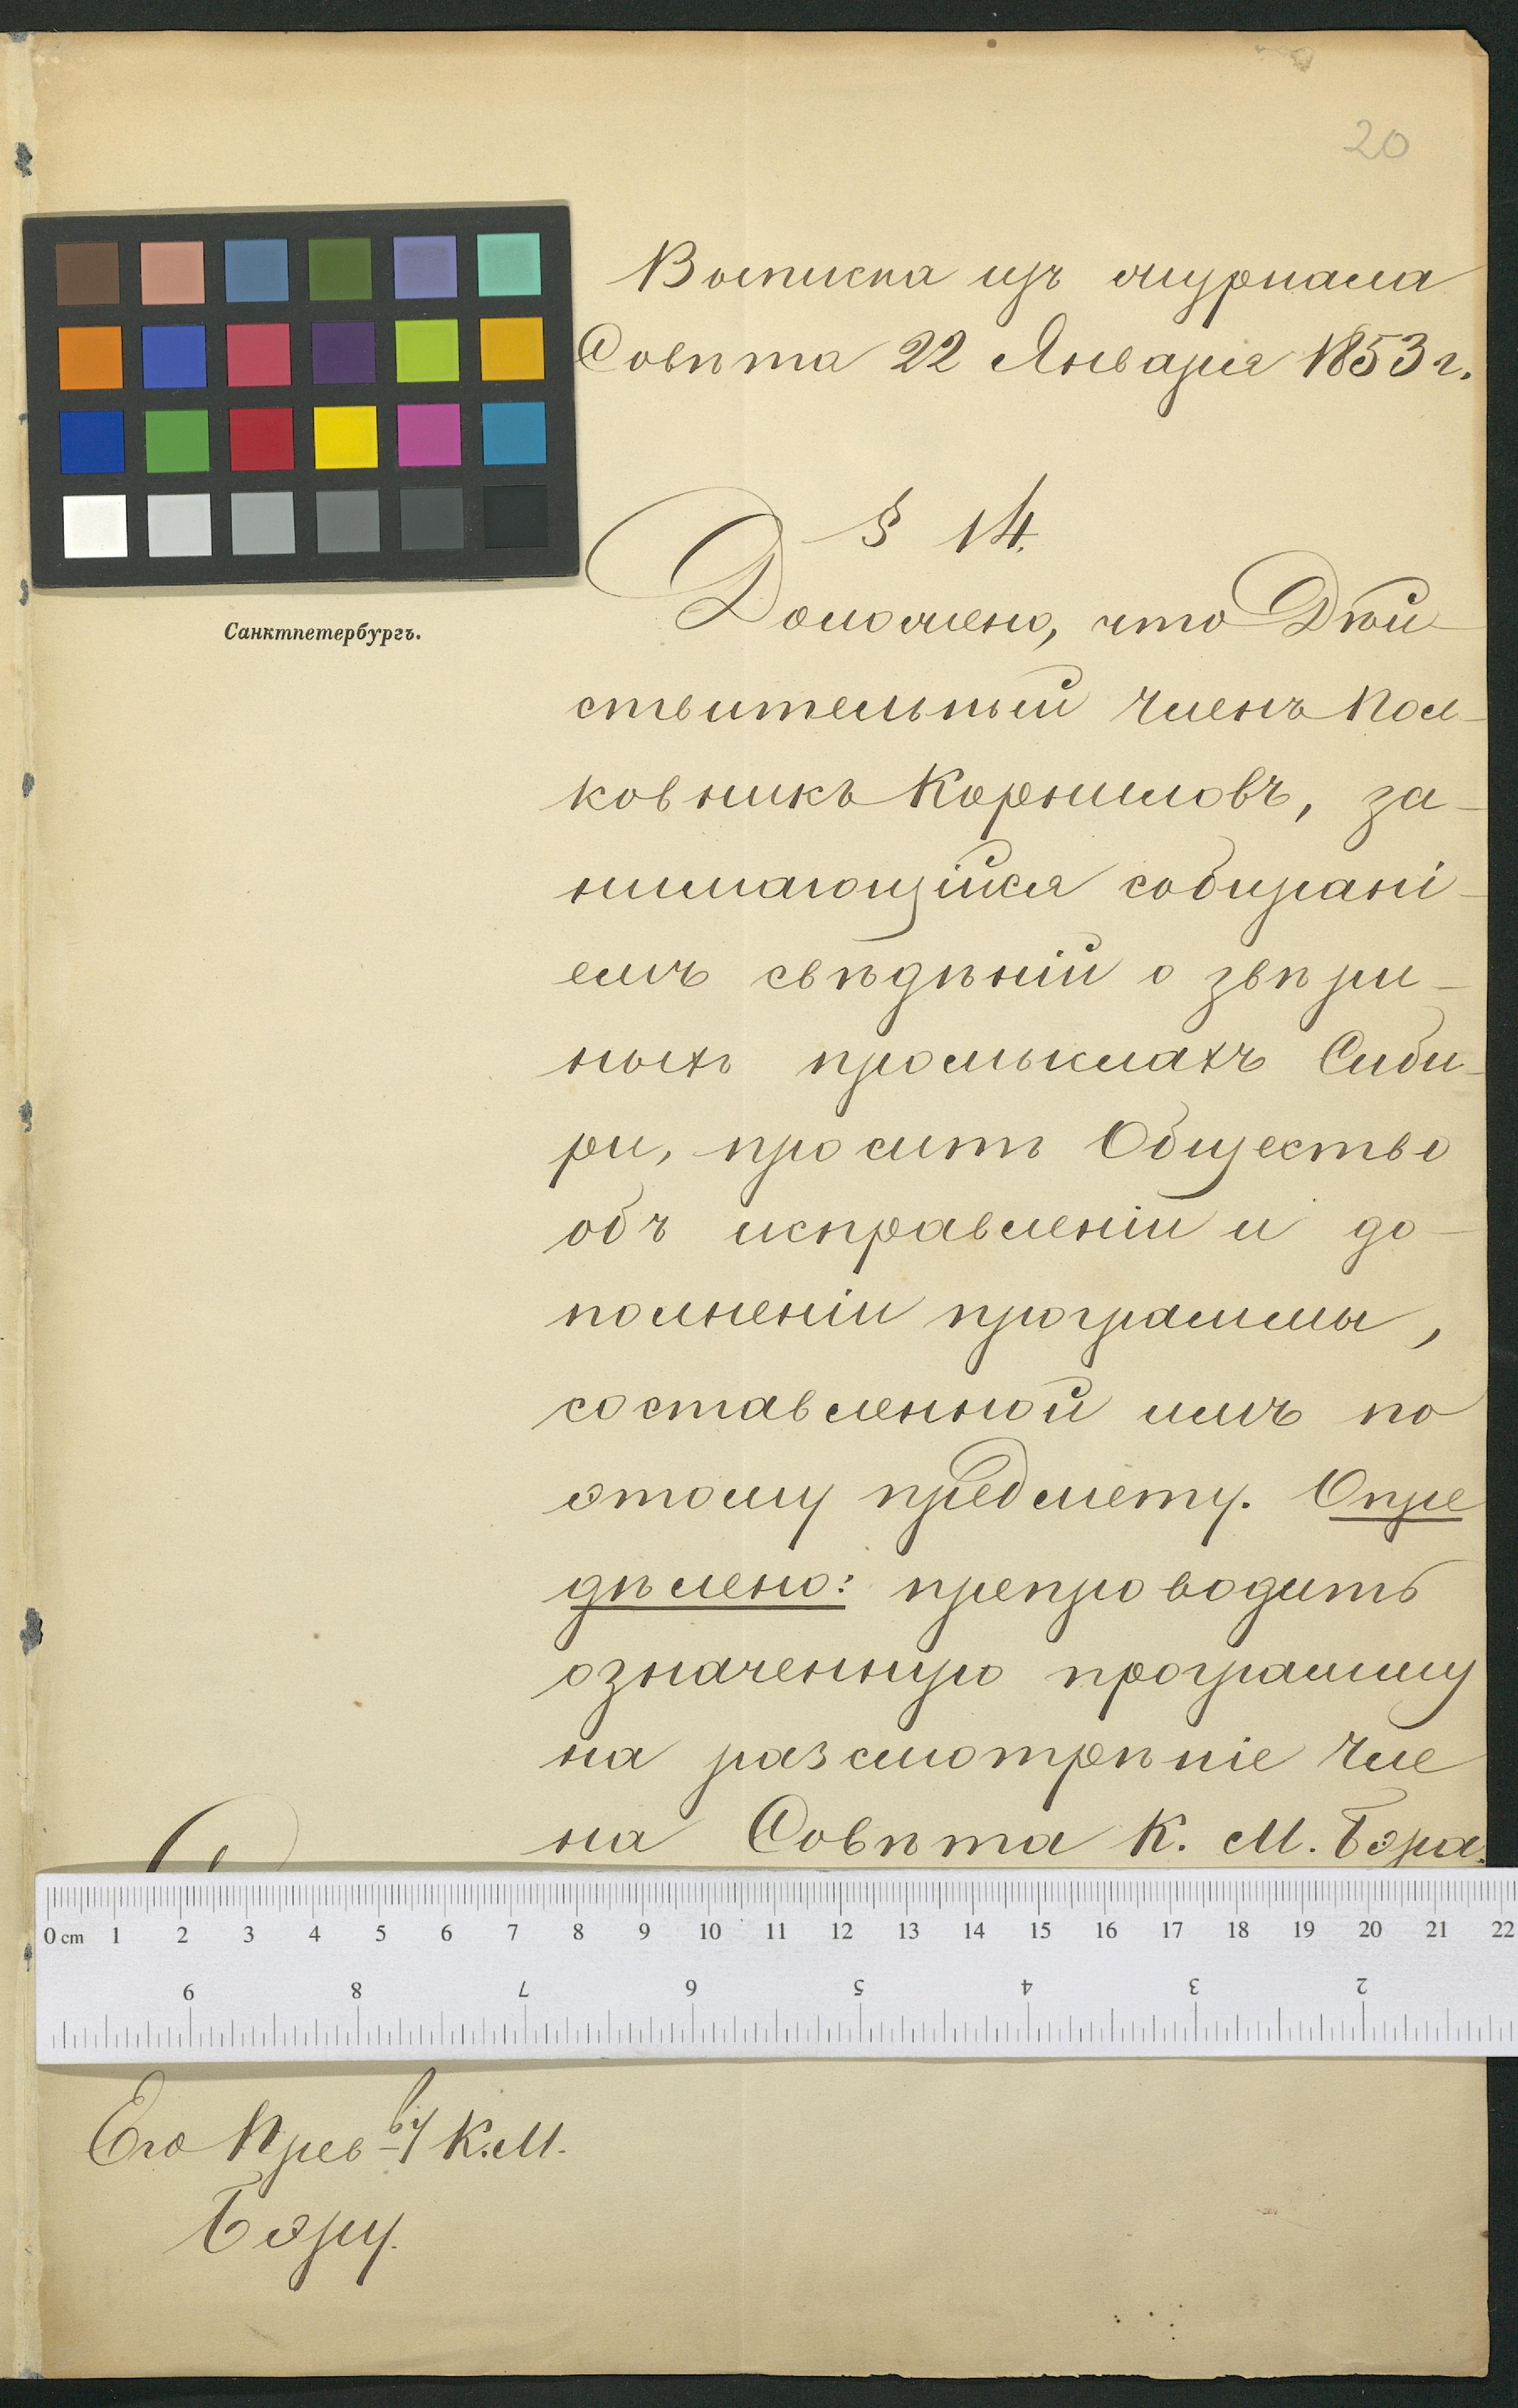 20
Выписка изъ журнала
Совѣта 22 Января 1853 г.
§ 14.
Санктпетербургъ.
Доложено, что Дѣй-
ствительный Членъ Пол-
ковникъ Корниловъ, за-
нимающійся собирані-
емъ свѣдѣній о звѣри-
ныхъ промыслахъ Сиби-
ри, проситъ Общество
объ исправленіи и до-
полненіи программы,
составленной имъ по
этому предмету. Опре
дѣлено: препроводить
означенную программу
на разсмотрѣніе Чле
на Совѣта К. М. Бэра.
0 cm 1 2 3 4 5 6 7 8 9 10 11 12 13 14 15 16 17 18 19 20 21 22
9 8 7 6 5 4 3 2
Его Прев-ву К. М.
Бэру.